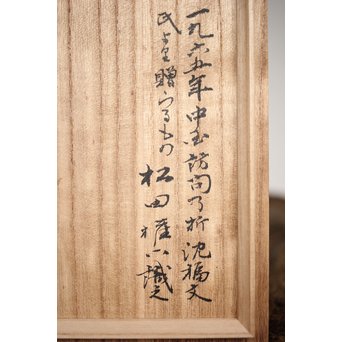 一九六五年中国訪問の折沈福文
氏より贈らるもの 松田権六識之